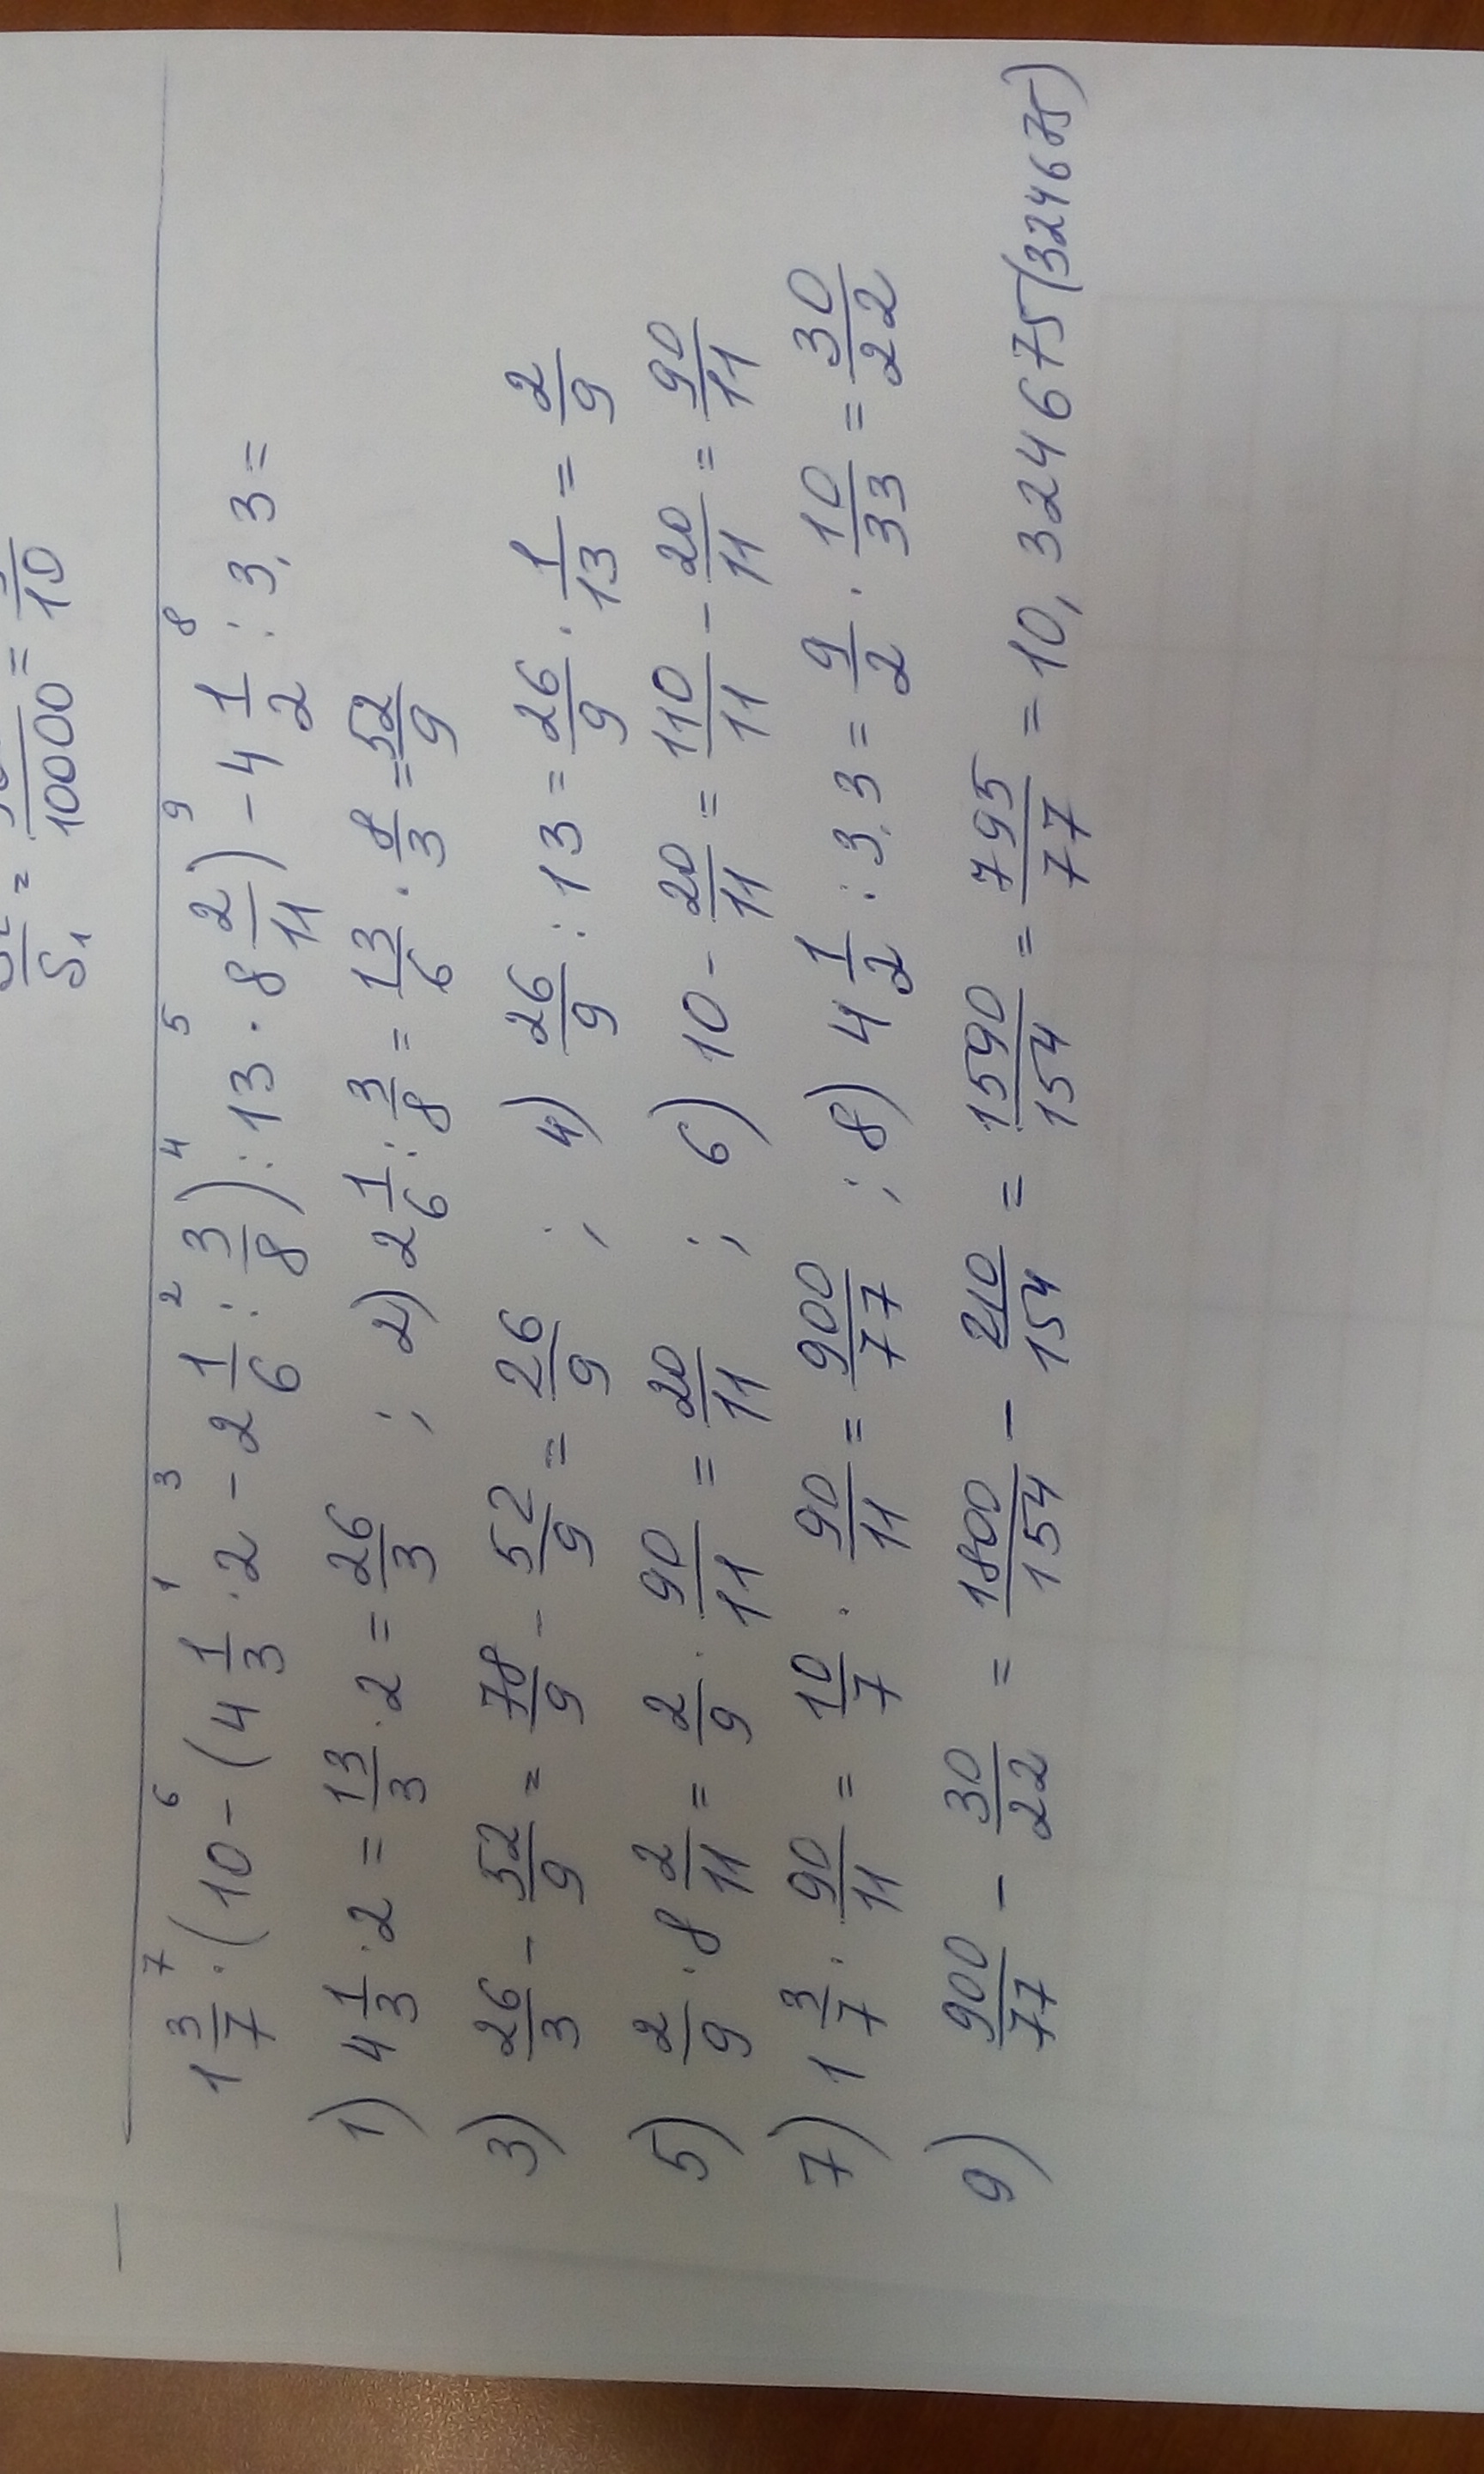 S₁ = 10000 = 10
7 6 1 3 2 4 5 9 8
1 3/7 · (10 - (4 1/3 · 2 - 2 1/6 : 3/8) : 13 · 8 2/11) - 4 1/2 : 3,3 =
1) 4 1/3 · 2 = 13/3 · 2 = 26/3 ; 2) 2 1/6 : 3/8 = 13/6 · 8/3 = 52/9
3) 26/3 - 52/9 = 78/9 - 52/9 = 26/9 ; 4) 26/9 : 13 = 26/9 · 1/13 = 2/9
5) 2/9 · 8 2/11 = 2/9 · 90/11 = 20/11 ; 6) 10 - 20/11 = 110/11 - 20/11 = 90/11
7) 1 3/7 · 90/11 = 10/7 · 90/11 = 900/77 ; 8) 4 1/2 : 3,3 = 9/2 · 10/33 = 30/22
9) 900/77 - 30/22 = 1800/154 - 210/154 = 1590/154 = 795/77 = 10,324675(324675)